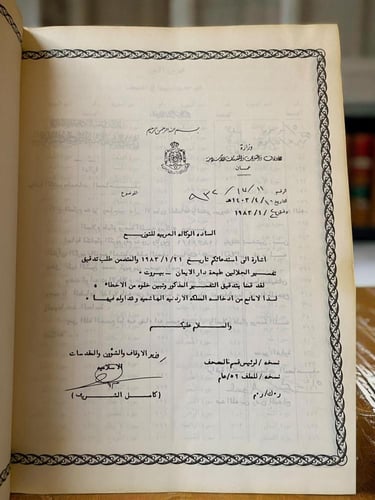 بسم الله الرحمن الرحيم
وزارة
الأوقاف والشؤون والمقدسات الإسلامية
عمان
الرقم
التاريخ ١٤٠٣/٤/ هـ
الموافق ١٩٨٣/١/
الموضوع
الساده الوكاله العربيه للتوزيع
اشارة الى استدعائكم تاريخ ١٩٨٣/١/٢٦ والمتضمن طلب تدقيق
تفسير الجلالين طبعة دار الايمان - بيروت ٠
لقد قمنا بتدقيق التفسير المذكور وتبين خلوه من الأخطاء ٠
لذا لامانع من ادخاله المملكه الاردنيه الهاشميه وتداوله فيها ٠
والسلام عليكم
وزير الاوقاف والشؤون والمقدسات
الاسلاميه
(كامل الشريف)
نسخه / لرئيس قسم المصحف
نسخه / للملف ٥٦/عام
ر٠ك/ر٠م